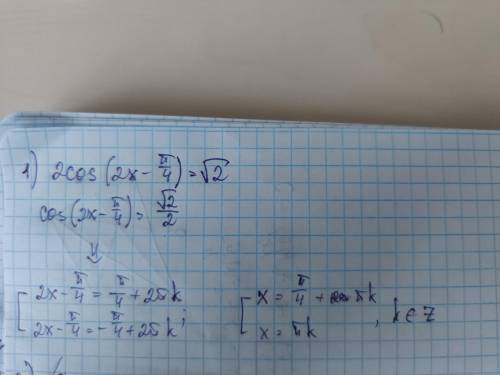 1) 2cos(2x - π/4) = √2
cos(2x - π/4) = √2/2
⇓
[ 2x - π/4 = π/4 + 2πk
2x - π/4 = -π/4 + 2πk ;
[ x = π/4 + πk
x = πk , k ∈ Z